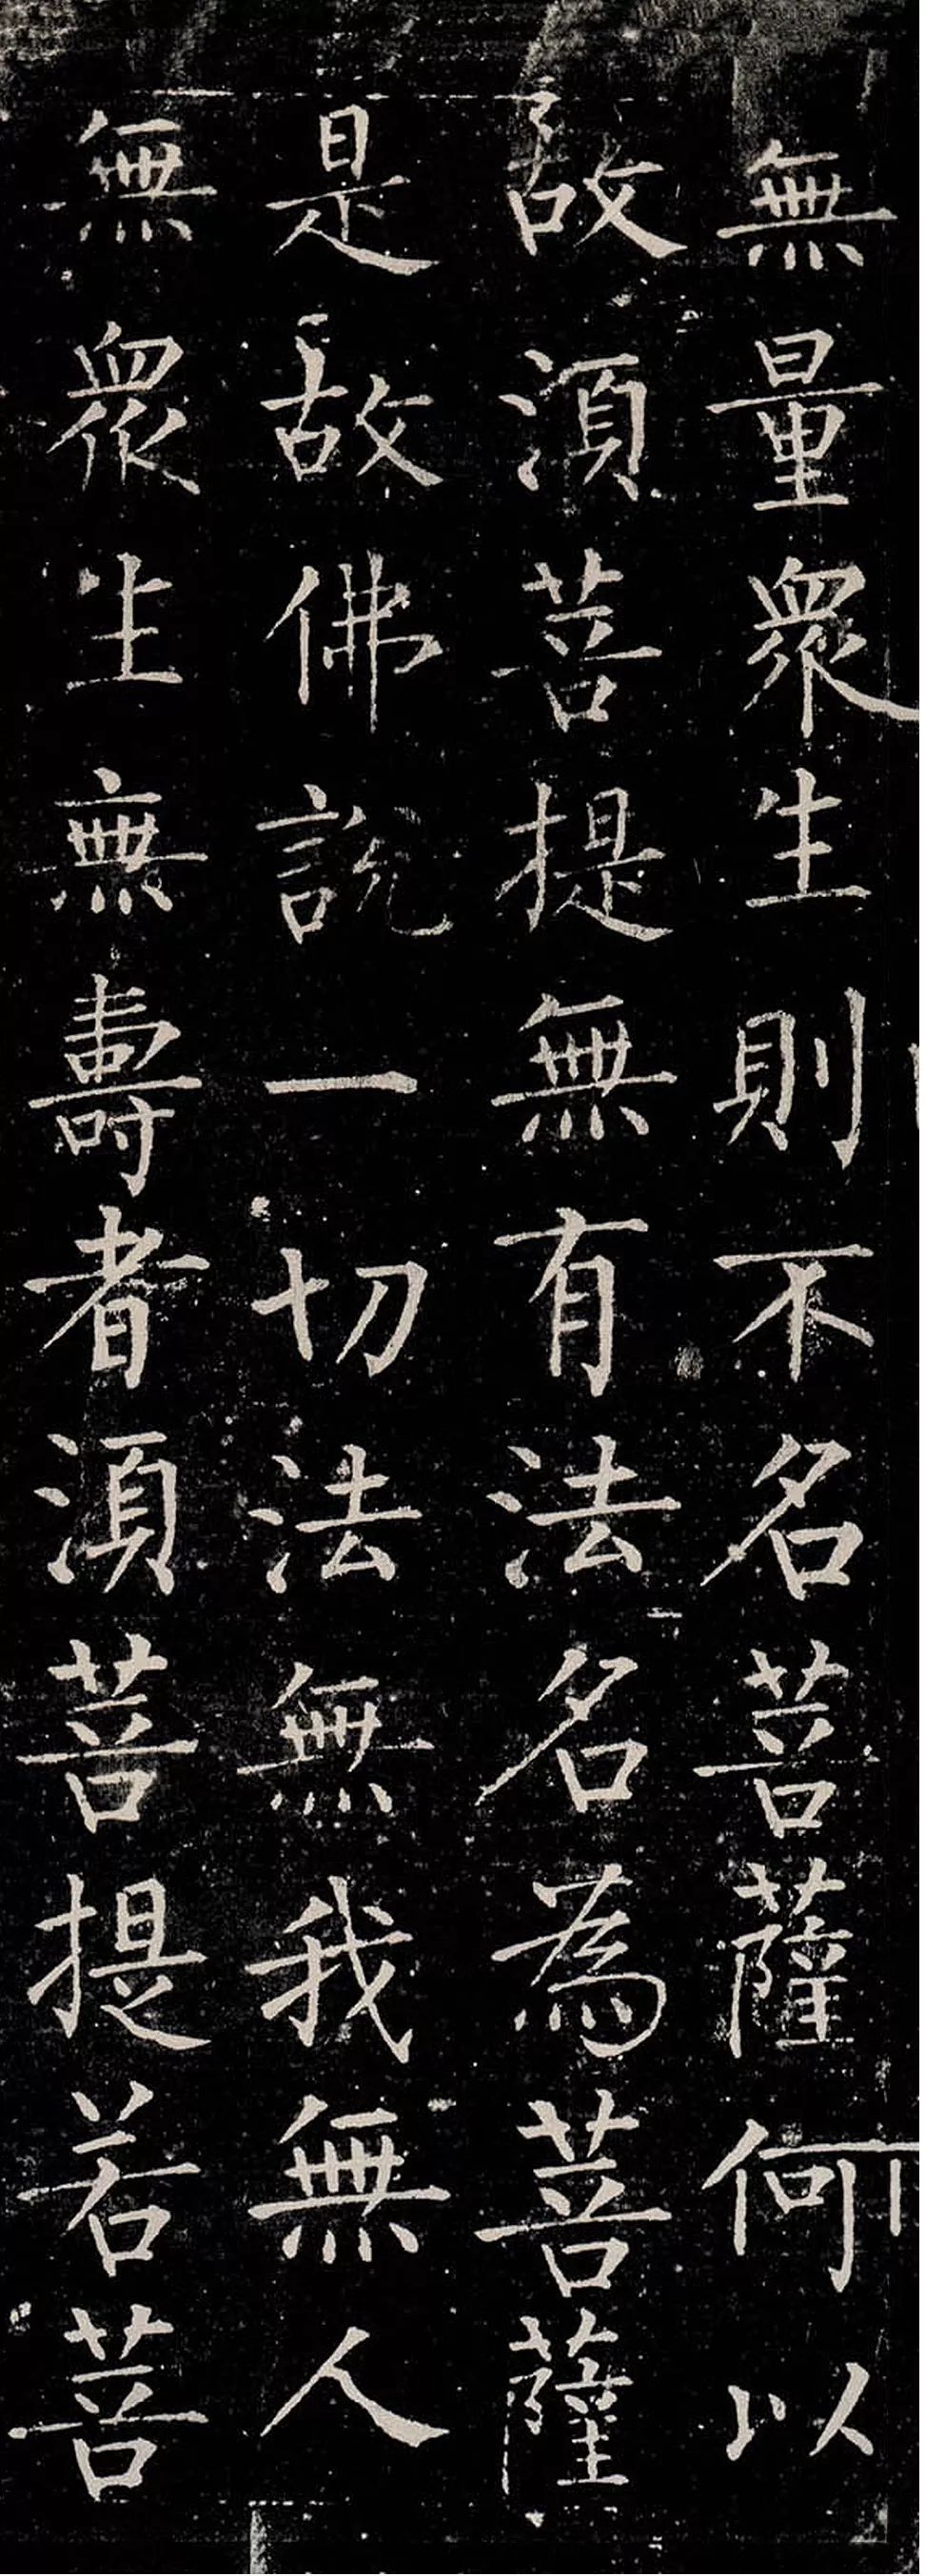 無量眾生則不名菩薩何以
故須菩提無有法名為菩薩
是故佛說一切法無我無人
無眾生無壽者須菩提若菩